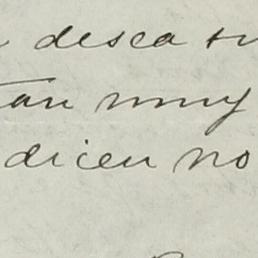 desea su
tan muy
dicen no